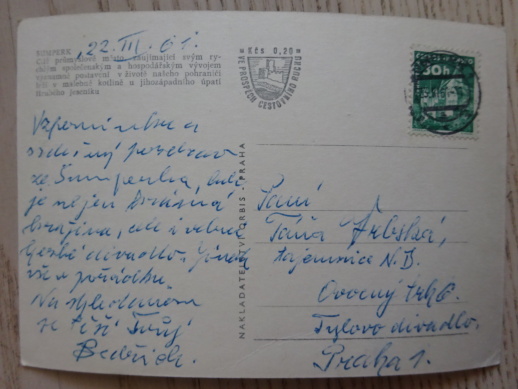 22. III. 61.
ŠUMPERK
průmyslové město, zaujímající svým ry-
chlým společenským a hospodářským vývojem
významné postavení v životě našeho pohraničí
leží v malebné kotlině u jihozápadního úpatí
Hrubého Jeseníku
* Kčs 0,20 *
VE PROSPĚCH CESTOVNÍHO RUCHU
30 h
Vzpomínku a
srdečný pozdrav
ze Šumperka, kde
je nejen krásná
krajina, ale i velmi
hezké divadlo. Jinak
vše v pořádku.
Na shledanou
se těší Tvůj
Bedřich.
NAKLADATELSTVÍ ORBIS · PRAHA
Paní
Táňa
tajemnice N.D.
Ovocný trh 6.
Tylovo divadlo.
Praha 1.